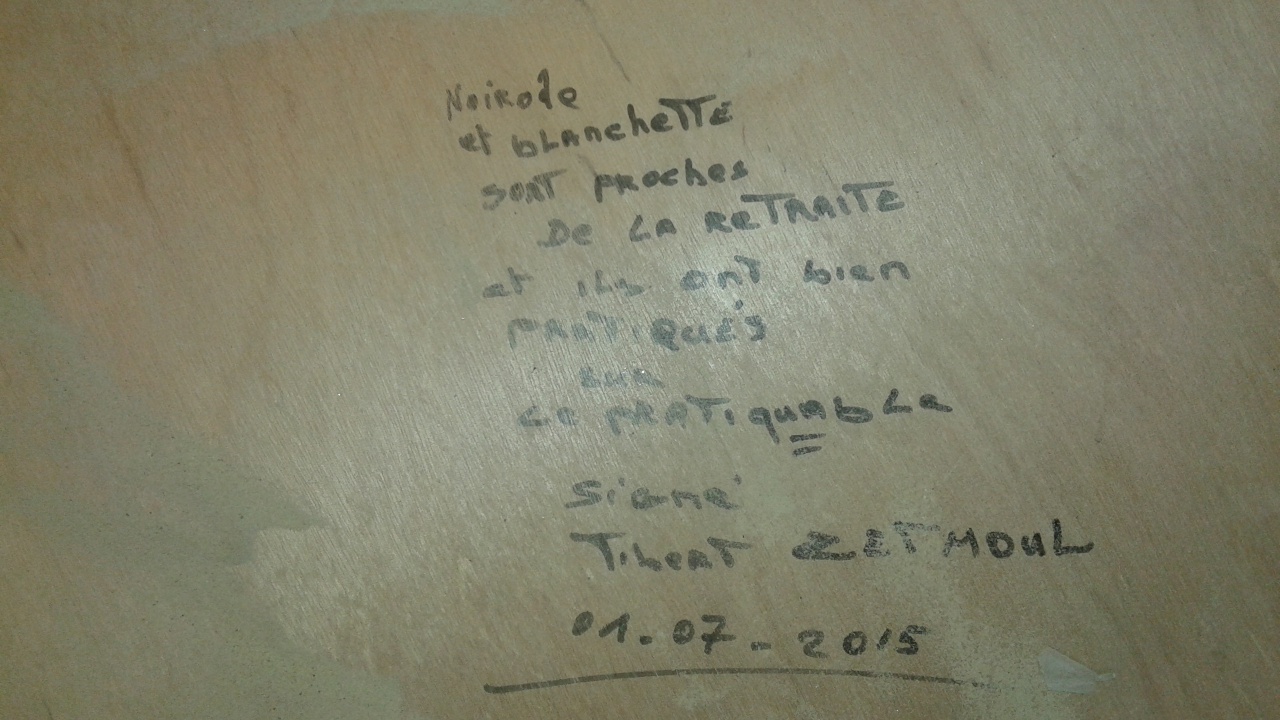 Noirote
et blancheTTE
sont proches
De LA ReTRAITE
et ils ont bien
PRATIQUÉS
sur
Le PRATiquabLe
Signé
Tibert ZETMOUL
01.07-2015